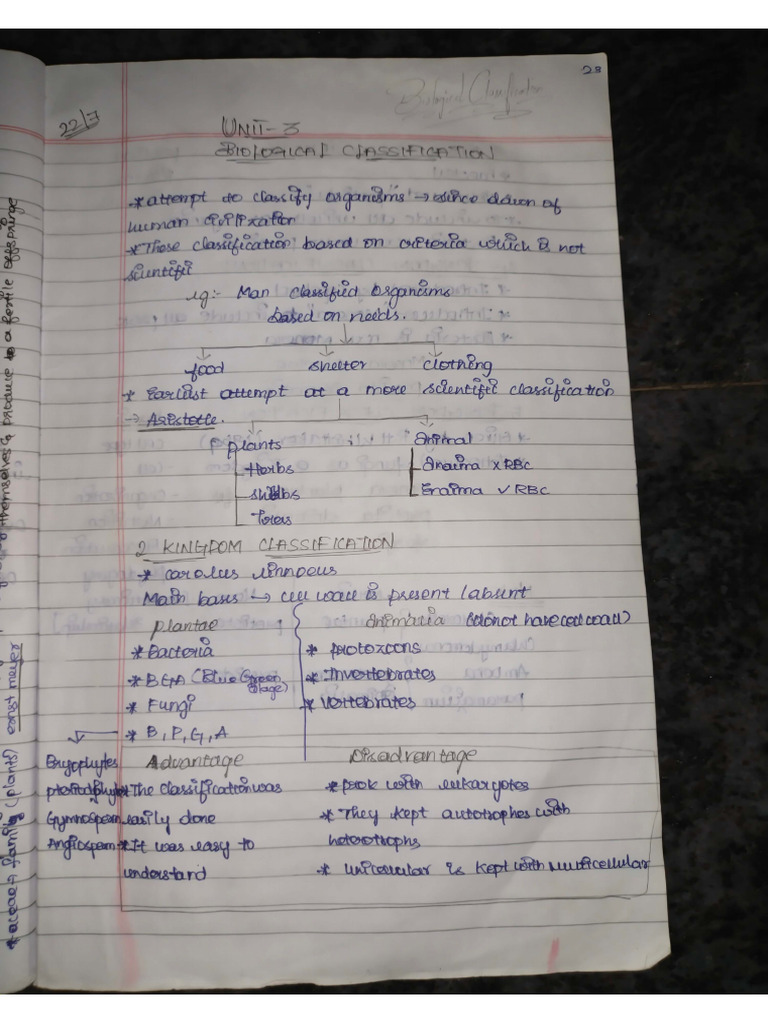 23
Biological Classification
22/7
UNIT-3
BIOLOGICAL CLASSIFICATION
* attempt to classify organisms → since dawn of
human civilization
* These classification based on criteria which is not
scientific
eg:- Man classified organisms
based on needs.
food shelter clothing
* Earliest attempt at a more scientific classification
→ Aristotle.
plants animal
Herbs Anaima x RBC
shrubs Enaima ✓ RBC
Trees
2 KINGDOM CLASSIFICATION
* carolus linnaeus
Main bases → cell wall is present / absent
plantae Animalia (donot have cell wall)
* Bacteria * protozoans
* BGA (Blue Green Alage) * Invertebrates
* Fungi * vertebrates
* B, P, G, A
Bryophytes Advantage Disadvantage
* The classification was * prok with eukaryotes
Gymnosperm easily done * They kept autotrophes with
Angiosperm * It was easy to heterotrophs
understand * unicellular is kept with multicellular
themselves & produce to a fertile offsprings
* aceae → family (plants) ernst mayer